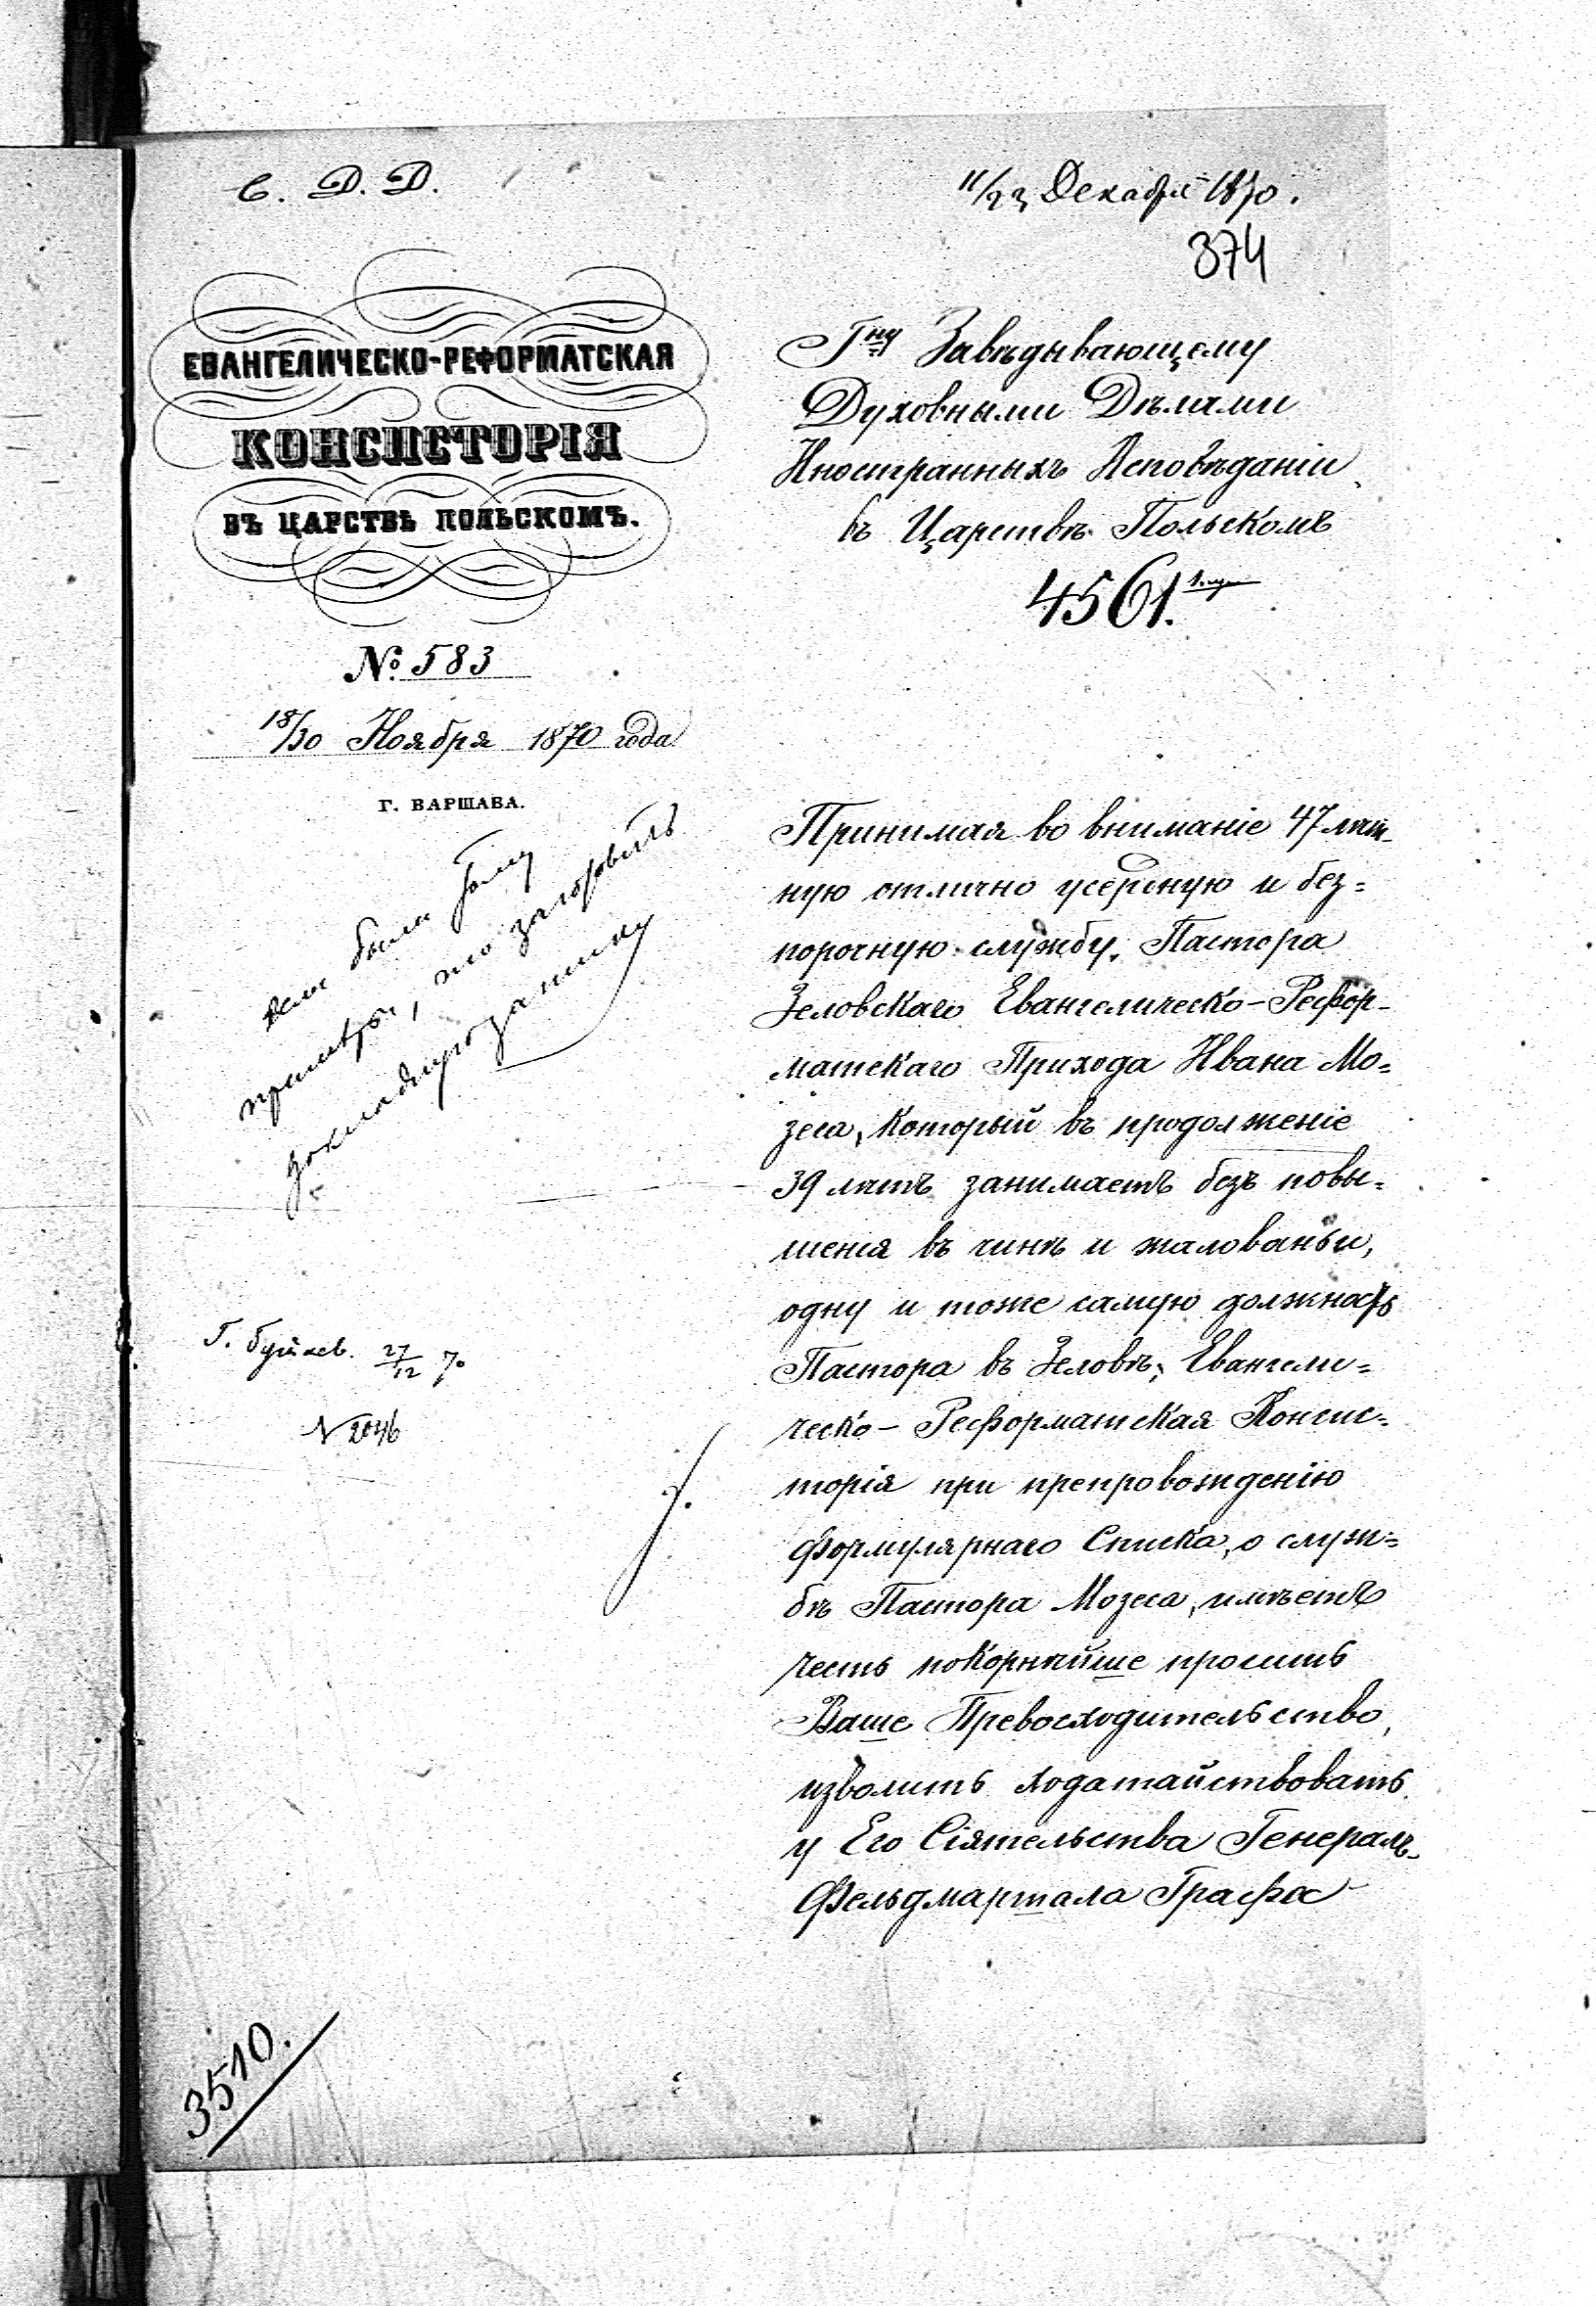 С. Д. Д.
11/23 Декабря 1870.
374
ЕВАНГЕЛИЧЕСКО-РЕФОРМАТСКАЯ
КОНСИСТОРІЯ
ВЪ ЦАРСТВѢ ПОЛЬСКОМЪ.
№ 583
18/30 Ноября 1870 года
Г. ВАРШАВА.
если были
примѣры, то заготовить
докладную записку
27/12 70
N 2046
3510.
Гну Завѣдывающему
Духовными Дѣлами
Иностранныхъ Исповѣданіи
въ Царствѣ Польскомъ
4561.
Принимая во вниманіе 47 лѣт-
ную отлично усердную и без=
порочную службу, Пастора
Зеловскаго Евангелическо-Рефор-
матскаго Прихода Ивана Мо=
зеса, который въ продолженіе
39 лѣтъ занимаетъ безъ повы=
шенія въ чинѣ и жалованьи,
одну и тоже самую должность
Пастора въ Зеловѣ, Евангели=
ческо-Реформатская Консис=
торія при препровожденію
Формулярнаго Списка, о служ=
бѣ Пастора Мозеса, имѣетъ
честь покорнѣйше просить
Ваше Превосходительство,
изволить ходатайствовать
у Его Сіятельства Генералъ-
Фельдмаршала Графа